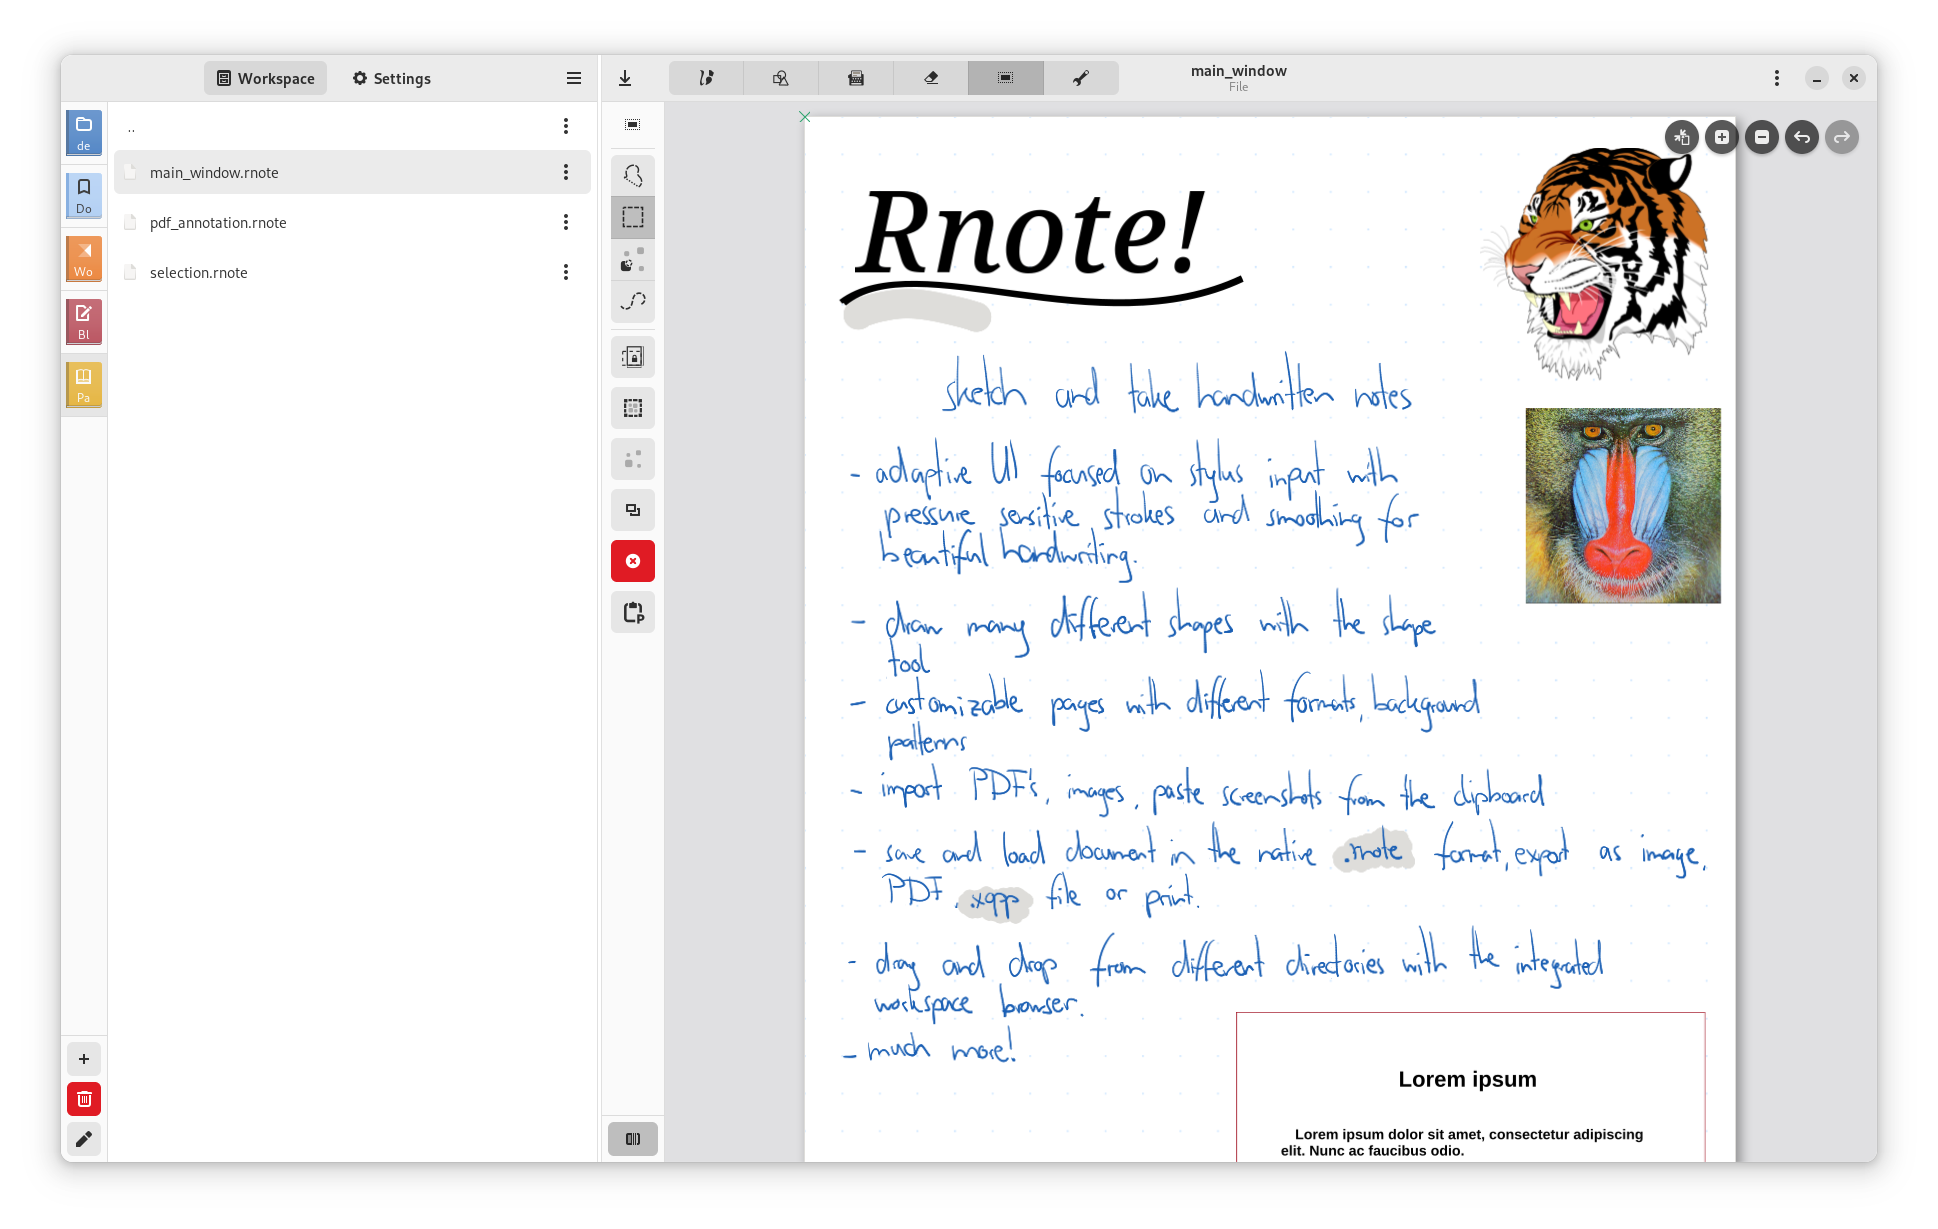 Workspace
Settings
main_window
File
de
Do
Wo
Bl
Pa
..
main_window.rnote
pdf_annotation.rnote
selection.rnote
Rnote!
sketch and take handwritten notes
- adaptive UI focused on stylus input with
pressure sensitive strokes and smoothing for
beautiful handwriting.
- draw many different shapes with the shape
tool
- customizable pages with different formats, background
patterns
- import PDF's, images, paste screenshots from the clipboard
- save and load document in the native .rnote format, export as image,
PDF, .xopp file or print.
- drag and drop from different directories with the integrated
workspace browser.
- much more!
Lorem ipsum
Lorem ipsum dolor sit amet, consectetur adipiscing
elit. Nunc ac faucibus odio.